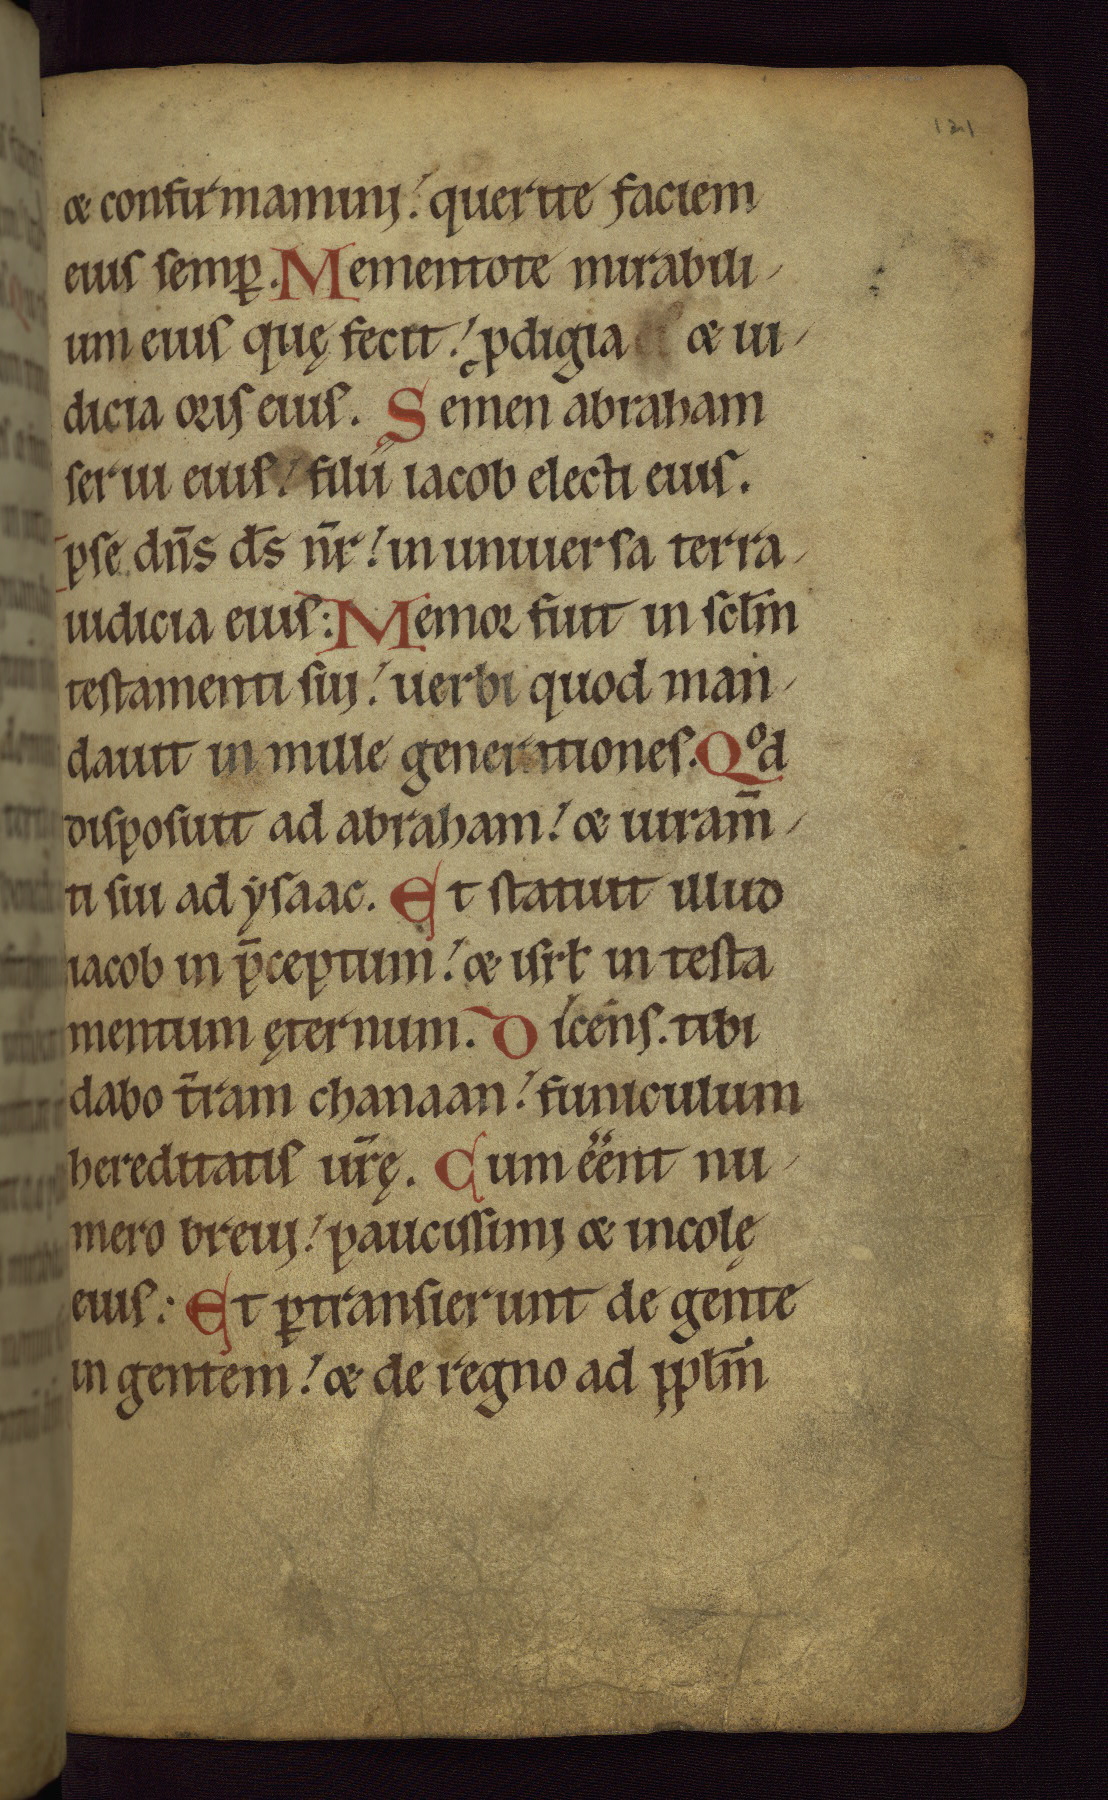 121
& confirmamini: querite faciem
eius semꝑ. Mementote mirabili
um eius quę fecit: ꝓdigia & iu
dicia oris eius. Semen abraham
serui eius: filii iacob electi eius.
Ipse dn̄s ds̄ nr̄: in uniuersa terra
iudicia eius: Memor fuit in sclm̄
testamenti sui: uerbi quod man
dauit in mille generationes. Qᵒd
disposuit ad abraham: & iuram̄
ti sui ad ysaac. Et statuit illud
iacob in p̄ceptum: & isrl̄ in testa
mentum ęternum. Dicēns. tibi
dabo t̄ram chanaan: funiculum
hereditatis ur̄ę. Cum eēnt nu
mero breui: paucissimi & incolę
eius: Et ꝑtransierunt de gente
in gentem: & de regno ad pplm̄